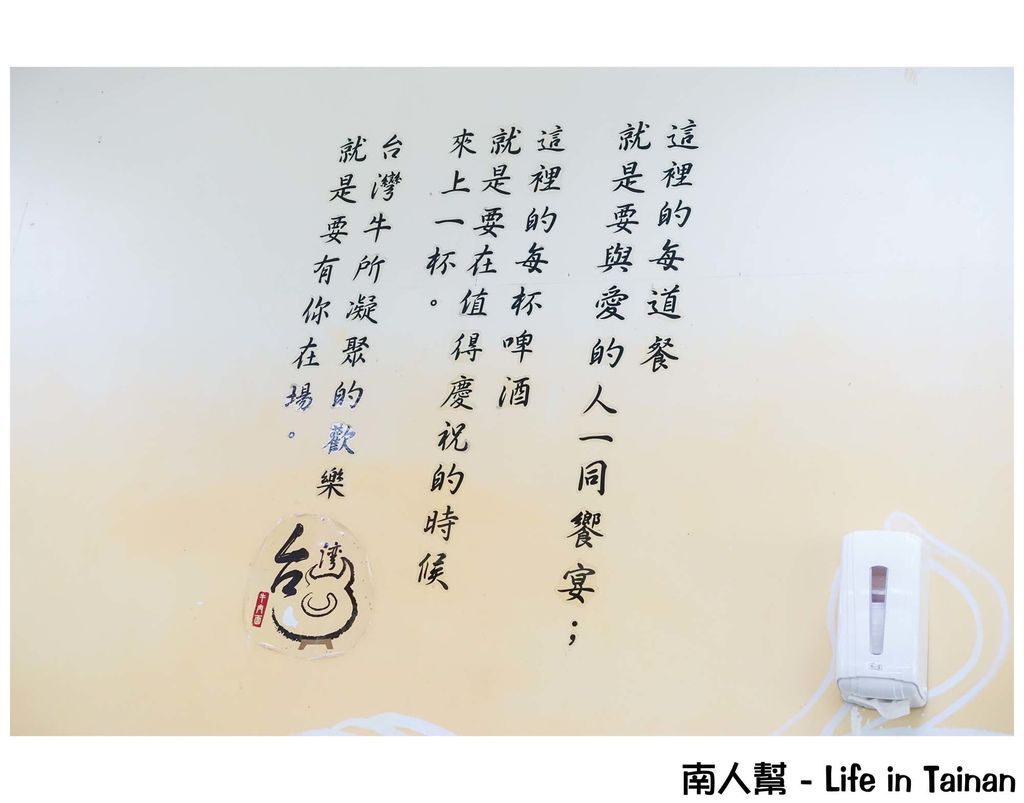 這裡的每道餐
就是要與愛的人一同饗宴；
這裡的每杯啤酒
就是要在值得慶祝的時候
來上一杯。
台灣牛所凝聚的歡樂
就是要有你在場。
台灣
牛肉麵
南人幫 - Life in Tainan